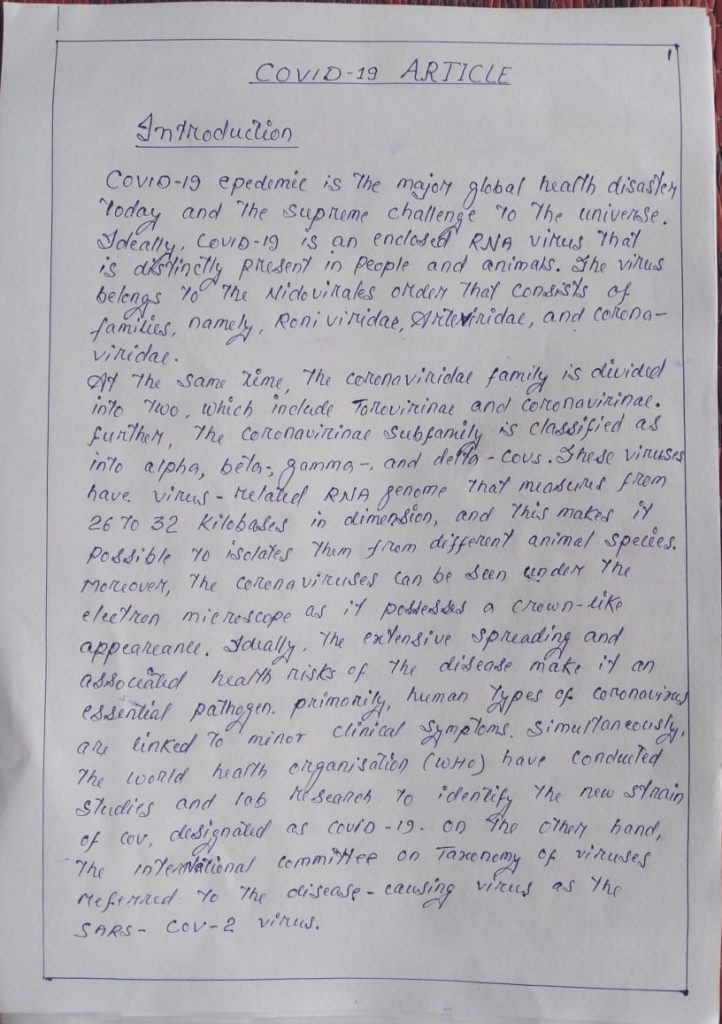 1
COVID-19 ARTICLE
Introduction
COVID-19 epedemic is the major global health disaster
today and the supreme challenge to the universe.
Ideally, COVID-19 is an enclosed RNA virus that
is distinctly present in people and animals. The virus
belongs to the Nidovirales order that consists of
families, namely, Roni viridae, Arteviridae, and corona-
viridae.
At the same time, the coronaviridae family is divided
into two, which include Torovirinae and coronavirinae.
further, the coronavirinae subfamily is classified as
into alpha, beta-, gamma-, and delta-covs. These viruses
have virus-related RNA genome that measures from
26 to 32 kilobases in dimension, and this makes it
possible to isolates them from different animal species.
Moreover, the coronaviruses can be seen under the
electron microscope as it possesses a crown-like
appeareance. Ideally, the extensive spreading and
associated health risks of the disease make it an
essential pathogen. primorily, human types of coronavirus
are linked to minor clinical symptoms. Simultaneously,
the world health organisation (WHO) have conducted
studies and lab research to identify the new strain
of cov, designated as covid-19. on the other hand,
the international committee on Taxonomy of viruses
referred to the disease-causing virus as the
SARS-COV-2 virus.